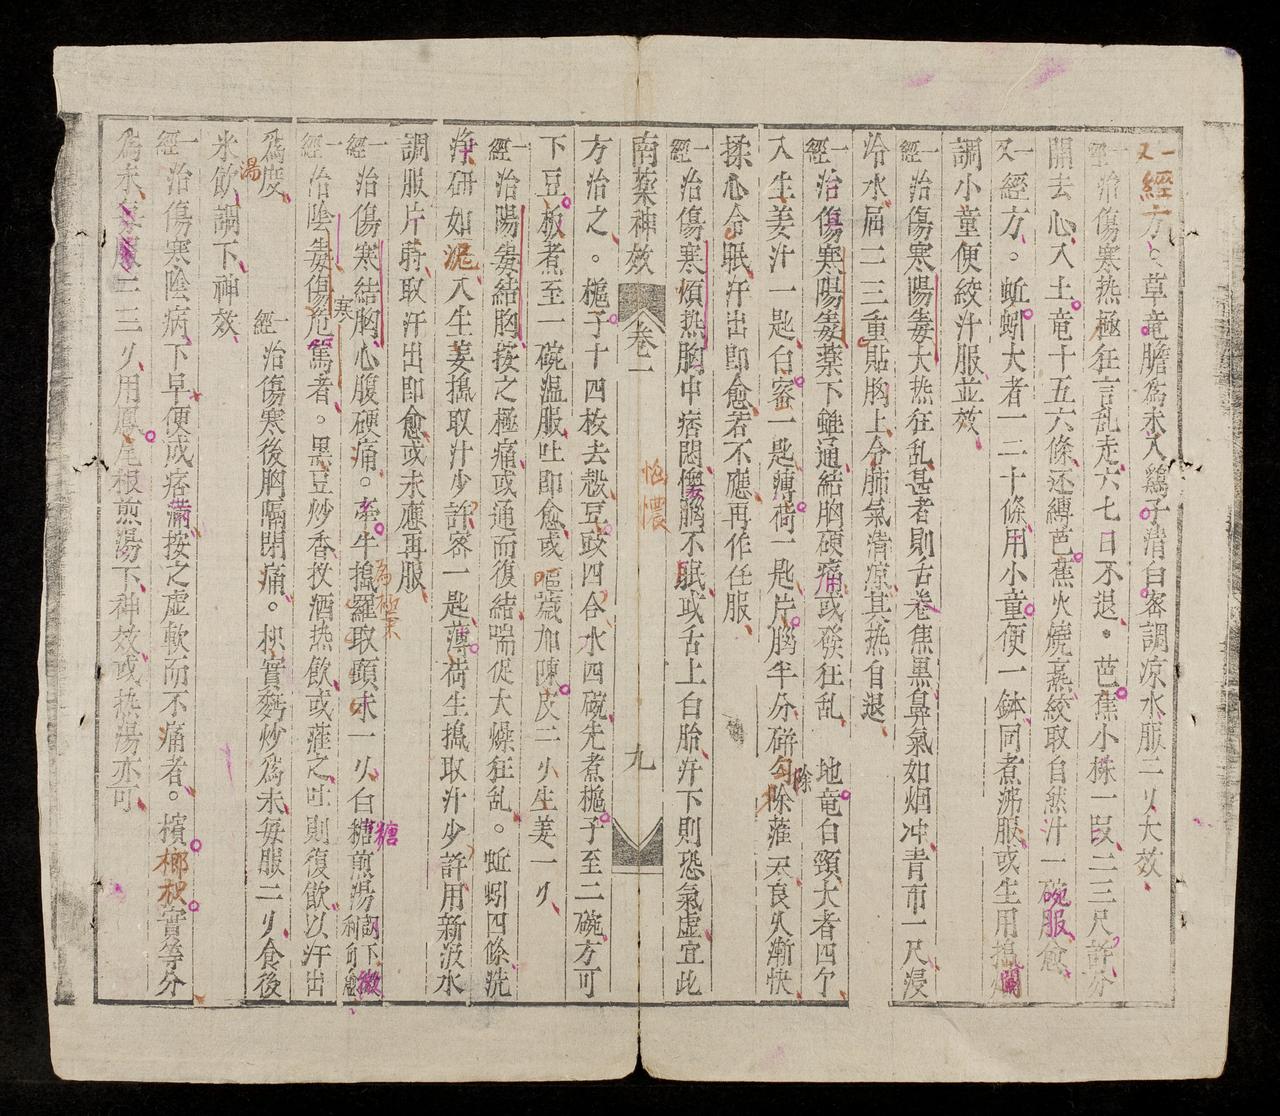 又一經方草竜膽為末入鷄子清白蜜調凉水服二刄大效
一經治傷寒热極狂言乱走六七日不退。芭蕉小株一段二三尺許分
開去心入土竜十五六條还縛芭蕉火燒蒸絞取自然汁一碗服愈
又一經方。蚯蚓大者一二十條用小童便一鉢同煮沸服或生用搗爛
調小童便絞汁服並效
一經治傷寒陽毒大热狂乱甚者則舌卷焦黑鼻氣如烟冲青布一尺浸
冷水届二三重貼胸上令肺氣清凉其热自退
一經治傷寒陽毒藥下雖通結胸硬痛或發狂乱 地竜白頸大者四个
入生姜汁一匙白蜜一匙薄荷一匙片腦半分硏匀除灌 良久漸快
除
揉心令眠汗出即愈若不應再作任服
一經治傷寒煩热胸中痞悶懊 不眠或舌上白胎汗下則恐氣虚宜此
南藥神效 卷二 九
方治之。梔子十四枚去殻豆豉四合水四碗先煮梔子至二碗方可
下豆板煮至一碗温服吐即愈或嘔歲加陳皮二刄生姜一刄
一經治陽毒結胸按之極痛或通而復結喘促大燥狂乱。蚯蚓四條洗
净研如泥入生姜搗取汁少許蜜一匙薄荷生搗取汁少許用新汲水
調服片時取汗出即愈或未應再服
一經治傷寒結胸心腹硬痛。牽牛搗羅取頭末一刄白糖煎湯調下微利即愈
為極
糖
一經治陰毒傷危篤者。黑豆炒香投酒热飲或灌之吐則復飲以汗出
寒
為度 一經治傷寒後胸膈閉痛。枳實麪炒為末每服二刄食後
米飲調下神效
湯
一經治傷寒陰病下早便成痞滿按之虚軟而不痛者。檳榔枳實等分
為末每服二三刄用鳳尾根煎湯下神效或热湯亦可